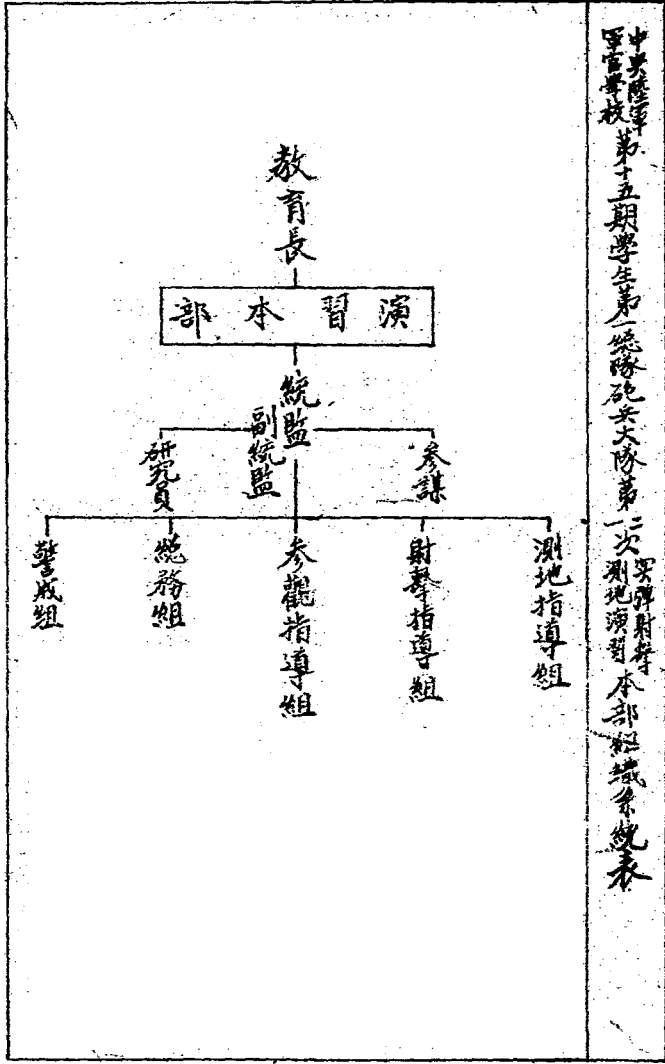 中央陸軍軍官學校第十五期學生第一總隊砲兵大隊第二一次實彈射擊測地演習本部組織系統表
教育長
演習本部
統監
副統監
參謀
研究員
測地指導組
射擊指導組
參觀指導組
總務組
警戒組